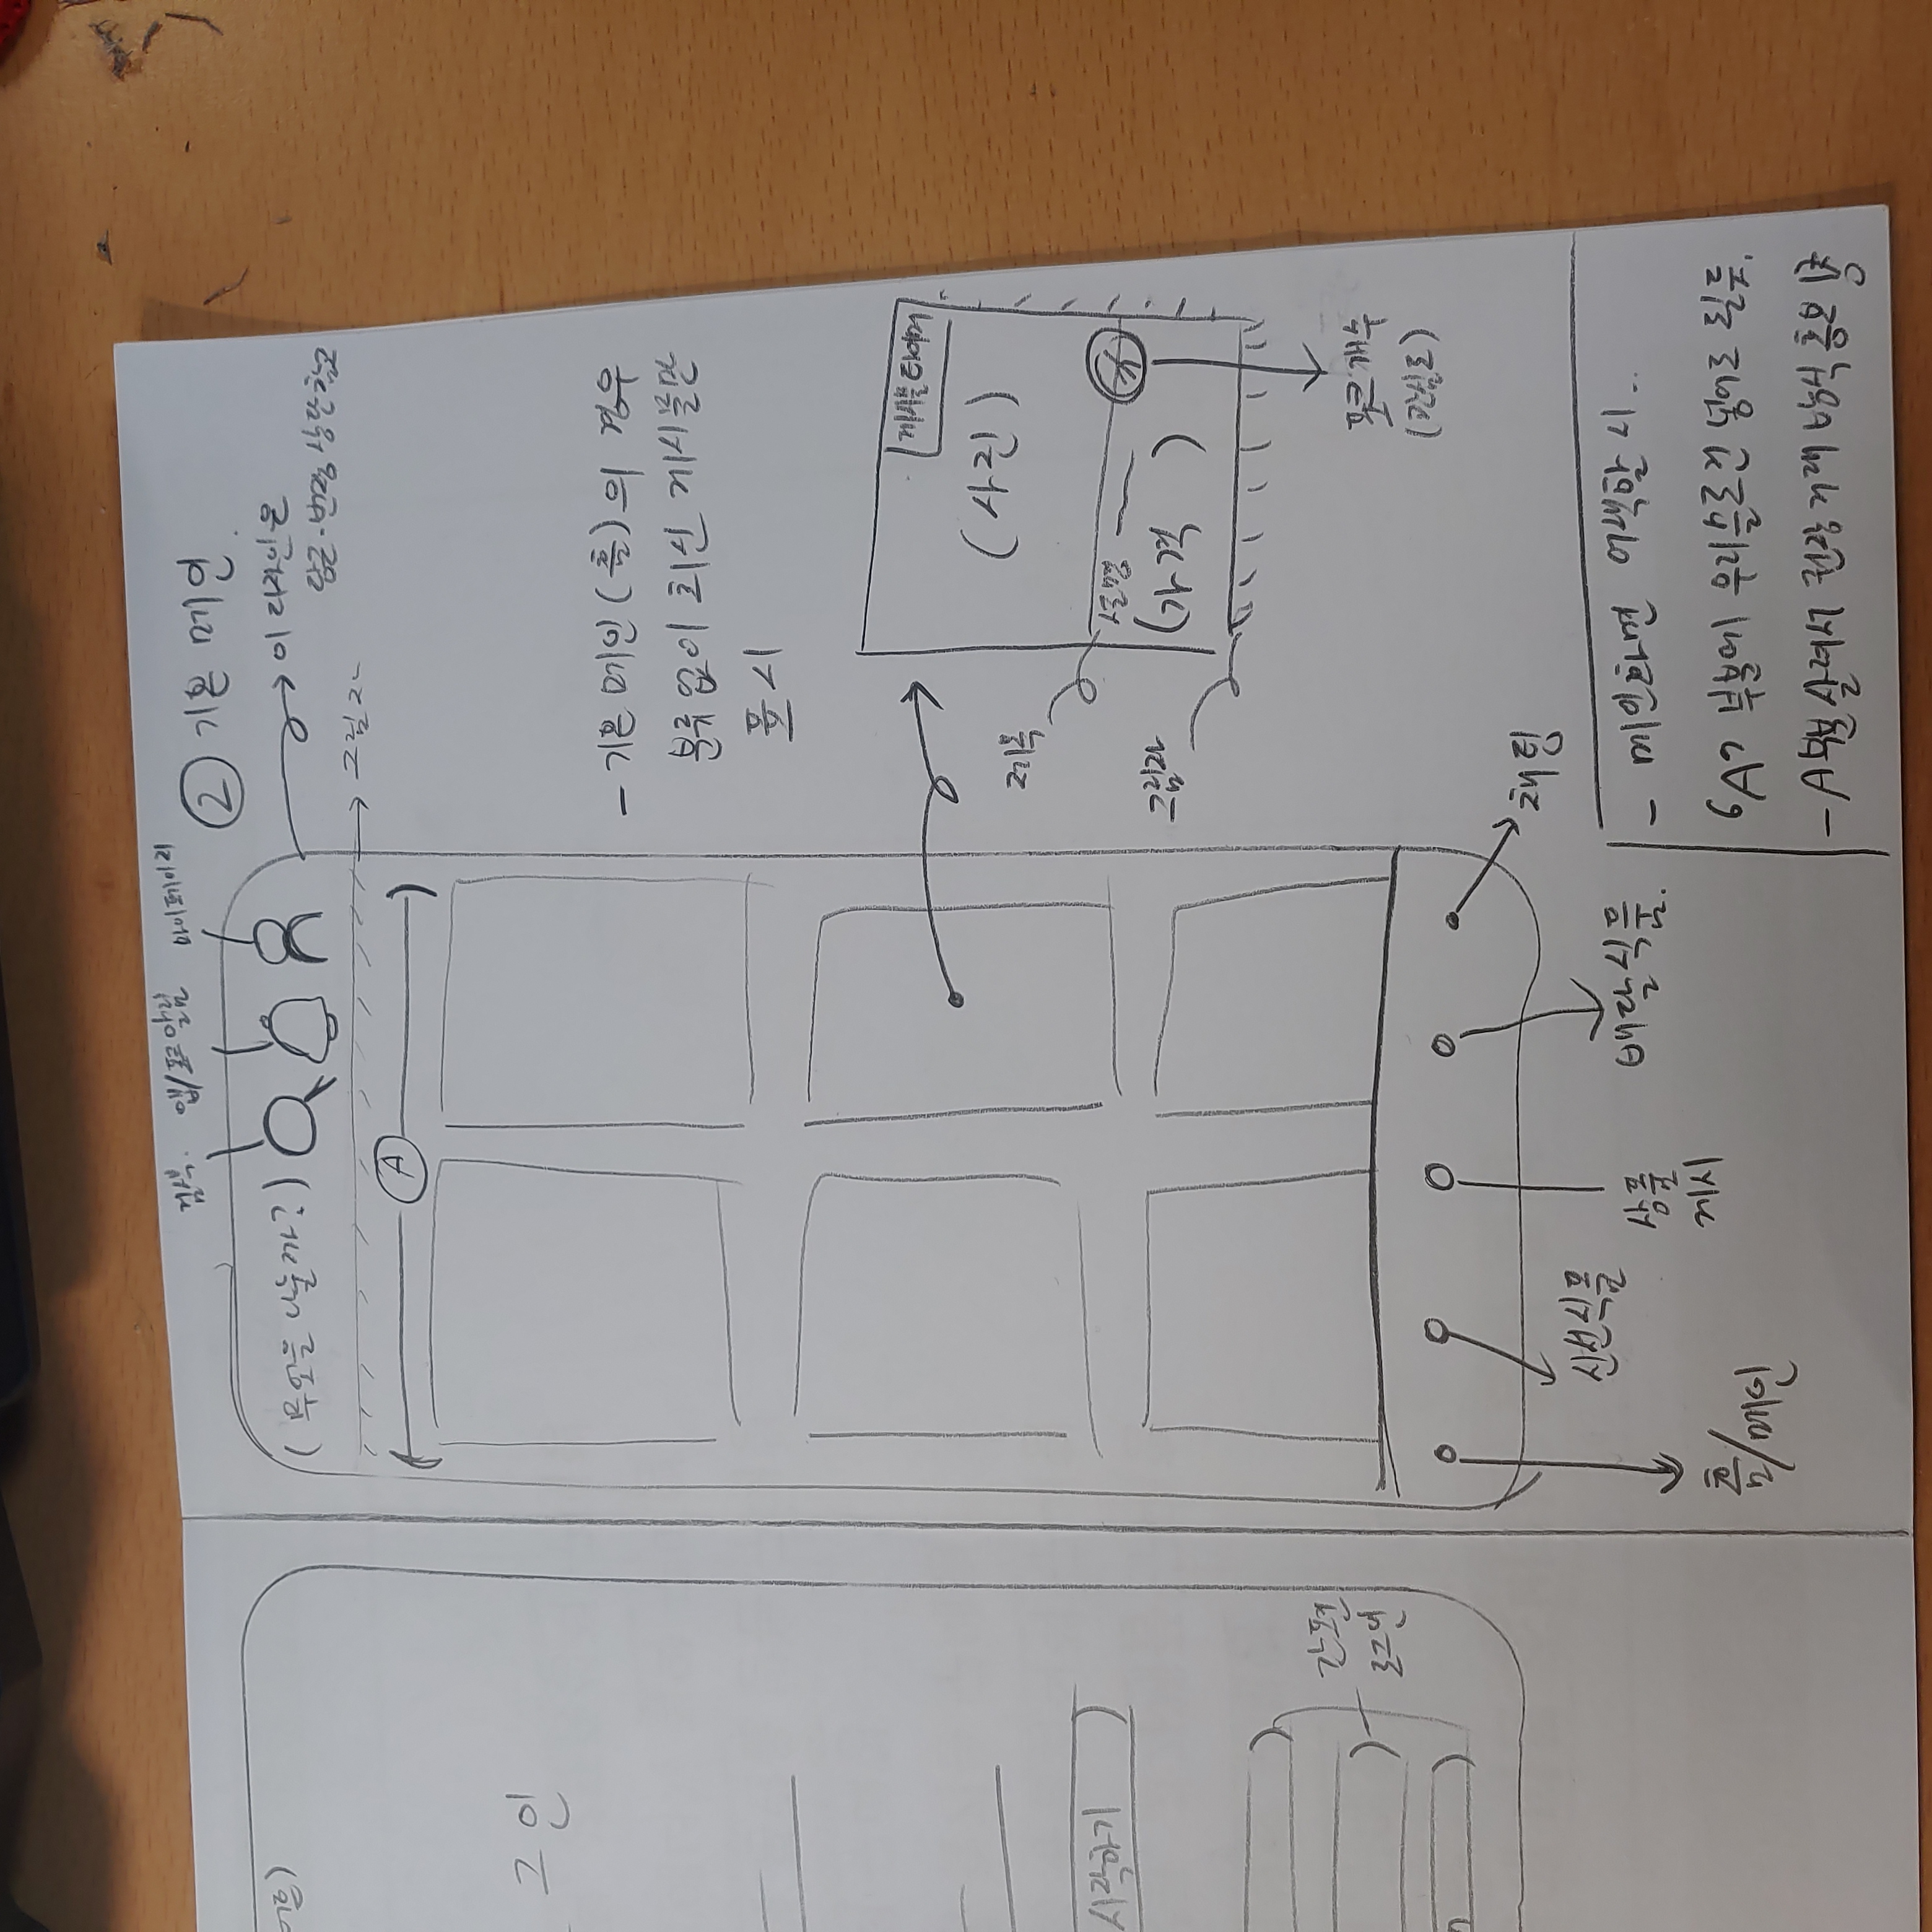 어른)
그인
시작하기
간편
로그인
검색. 앱/포크 알림 마이페이지
② 기본 메인.
(무엇을 나눌까?)
이 디자인은
당근·번장 상단 참고
그림자
A
- 기본 메인(홈)의 경우
분류 없이 최신 게시물만
표시
게시물 타이머
(사진)
제목
설명
(가격 )
그림자
포크 개수
(관심도)
홈/메인
신선식품
상품
게시
배달식품.
채팅
- 메인화면 어색할 시..
'A' 부분에 우리 슬로건 넣어도 될듯.
- A부분 살려서 권장 거래 방식 홍보